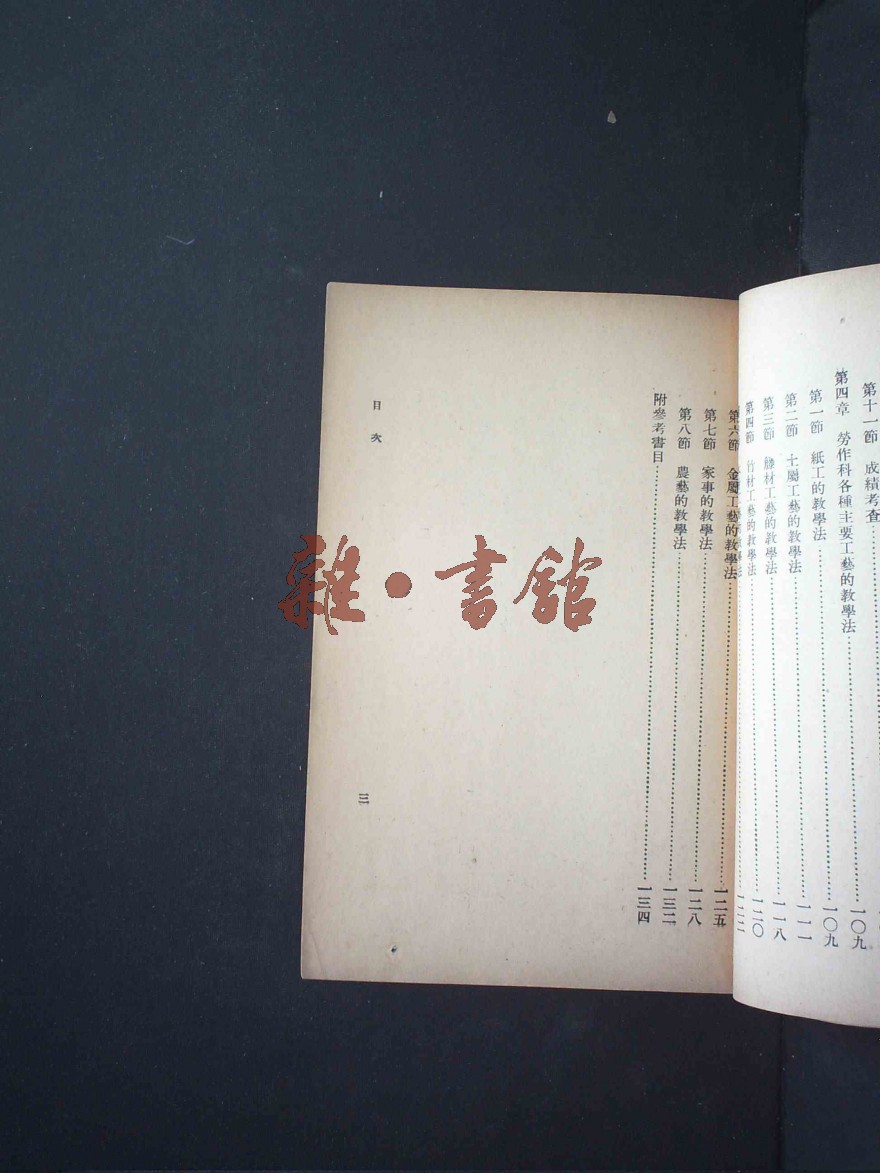 第十一節 成績考查
第四章 勞作科各種主要工藝的教學法……一〇九
第一節 紙工的教學法……一〇九
第二節 土屬工藝的教學法……一一一
第三節 藤材工藝的教學法……一一八
第四節 竹材工藝的教學法……一二〇
一二二
第六節 金屬工藝的教學法……一二五
第七節 家事的教學法……一二八
第八節 農藝的教學法……一三二
附參考書目……一三四
目次
三
雜·書館